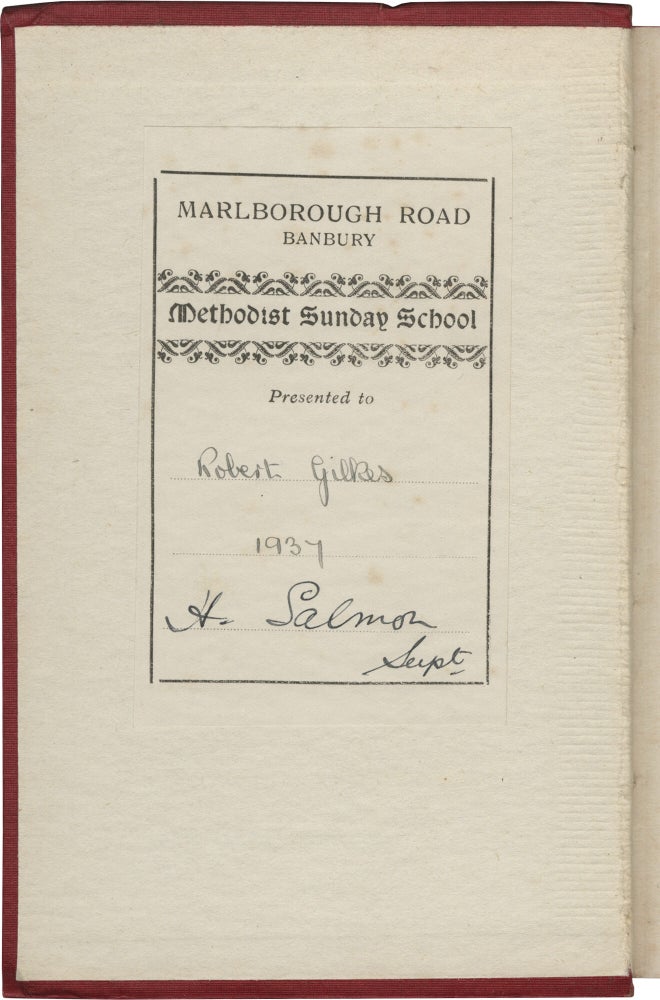 MARLBOROUGH ROAD
BANBURY
Methodist Sunday School
Presented to
Robert Gilkes
1937
H. Salmon
Supt.